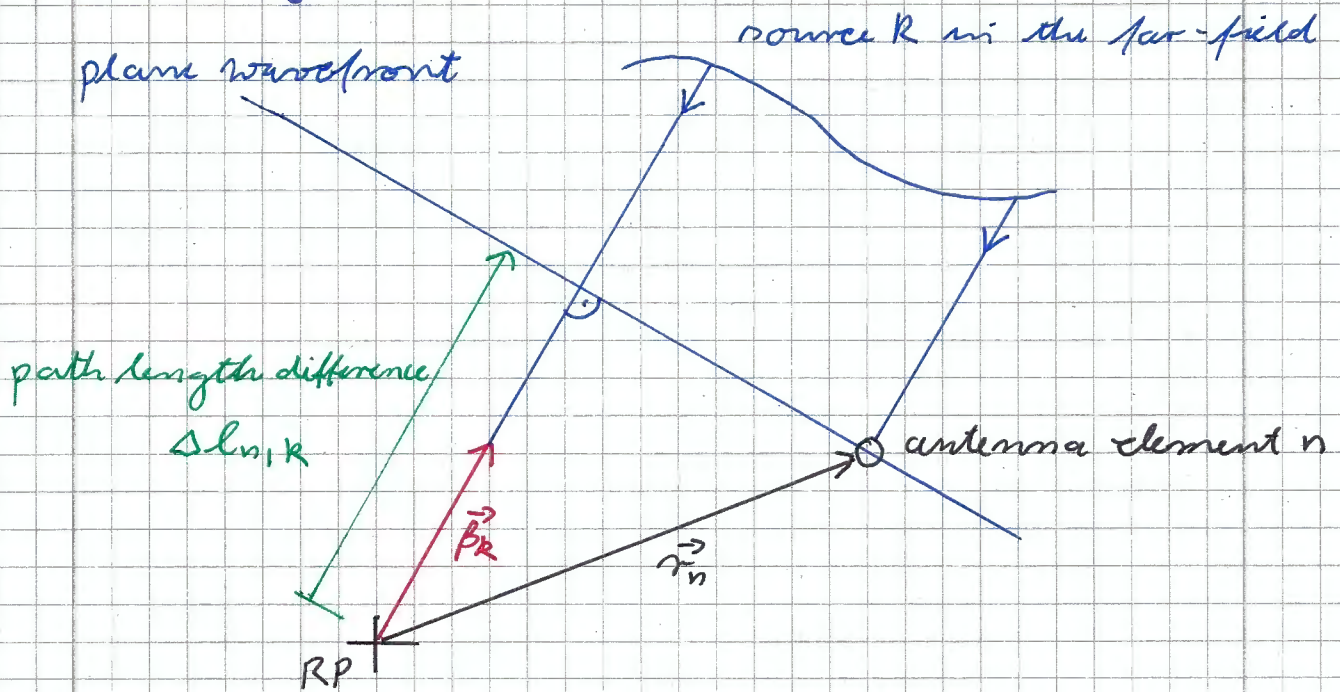 source k in the far-field
plane wavefront
path length difference
Δl_{n,k}
antenna element n
\vec{β_k}
\vec{r_n}
RP